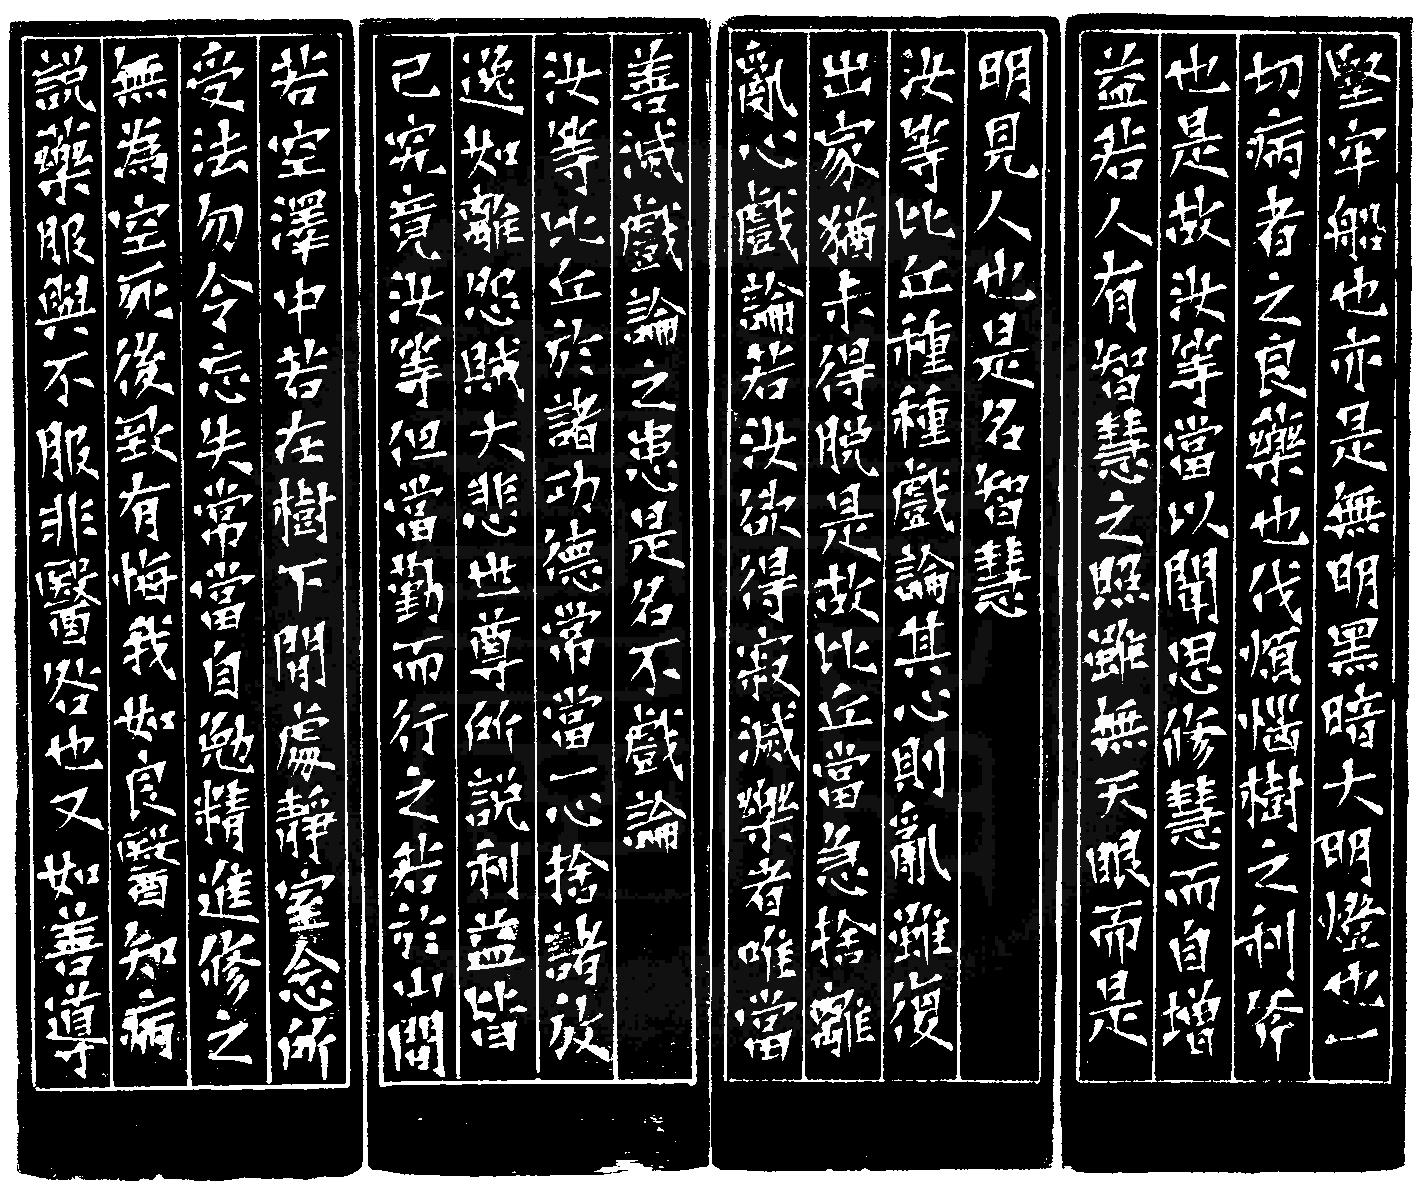 堅牢船也亦是無明黑暗大明燈也一
切病者之良藥也伐煩惱樹之利斧
也是故汝等當以聞思修慧而自增
益若人有智慧之照雖無天眼而是
明見人也是名智慧
汝等比丘種種戲論其心則亂雖復
出家猶未得脱是故比丘當急捨離
亂心戲論若汝欲得寂滅樂者唯當
善滅戲論之患是名不戲論
汝等比丘於諸功德常當一心捨諸放
逸如離怨賊大悲世尊所說利益皆
已究竟汝等但當勤而行之若於山間
若空澤中若在樹下閒處靜室念所
受法勿令忘失常當自勉精進修之
無為空死後致有悔我如良醫知病
說藥服與不服非醫咎也又如善導